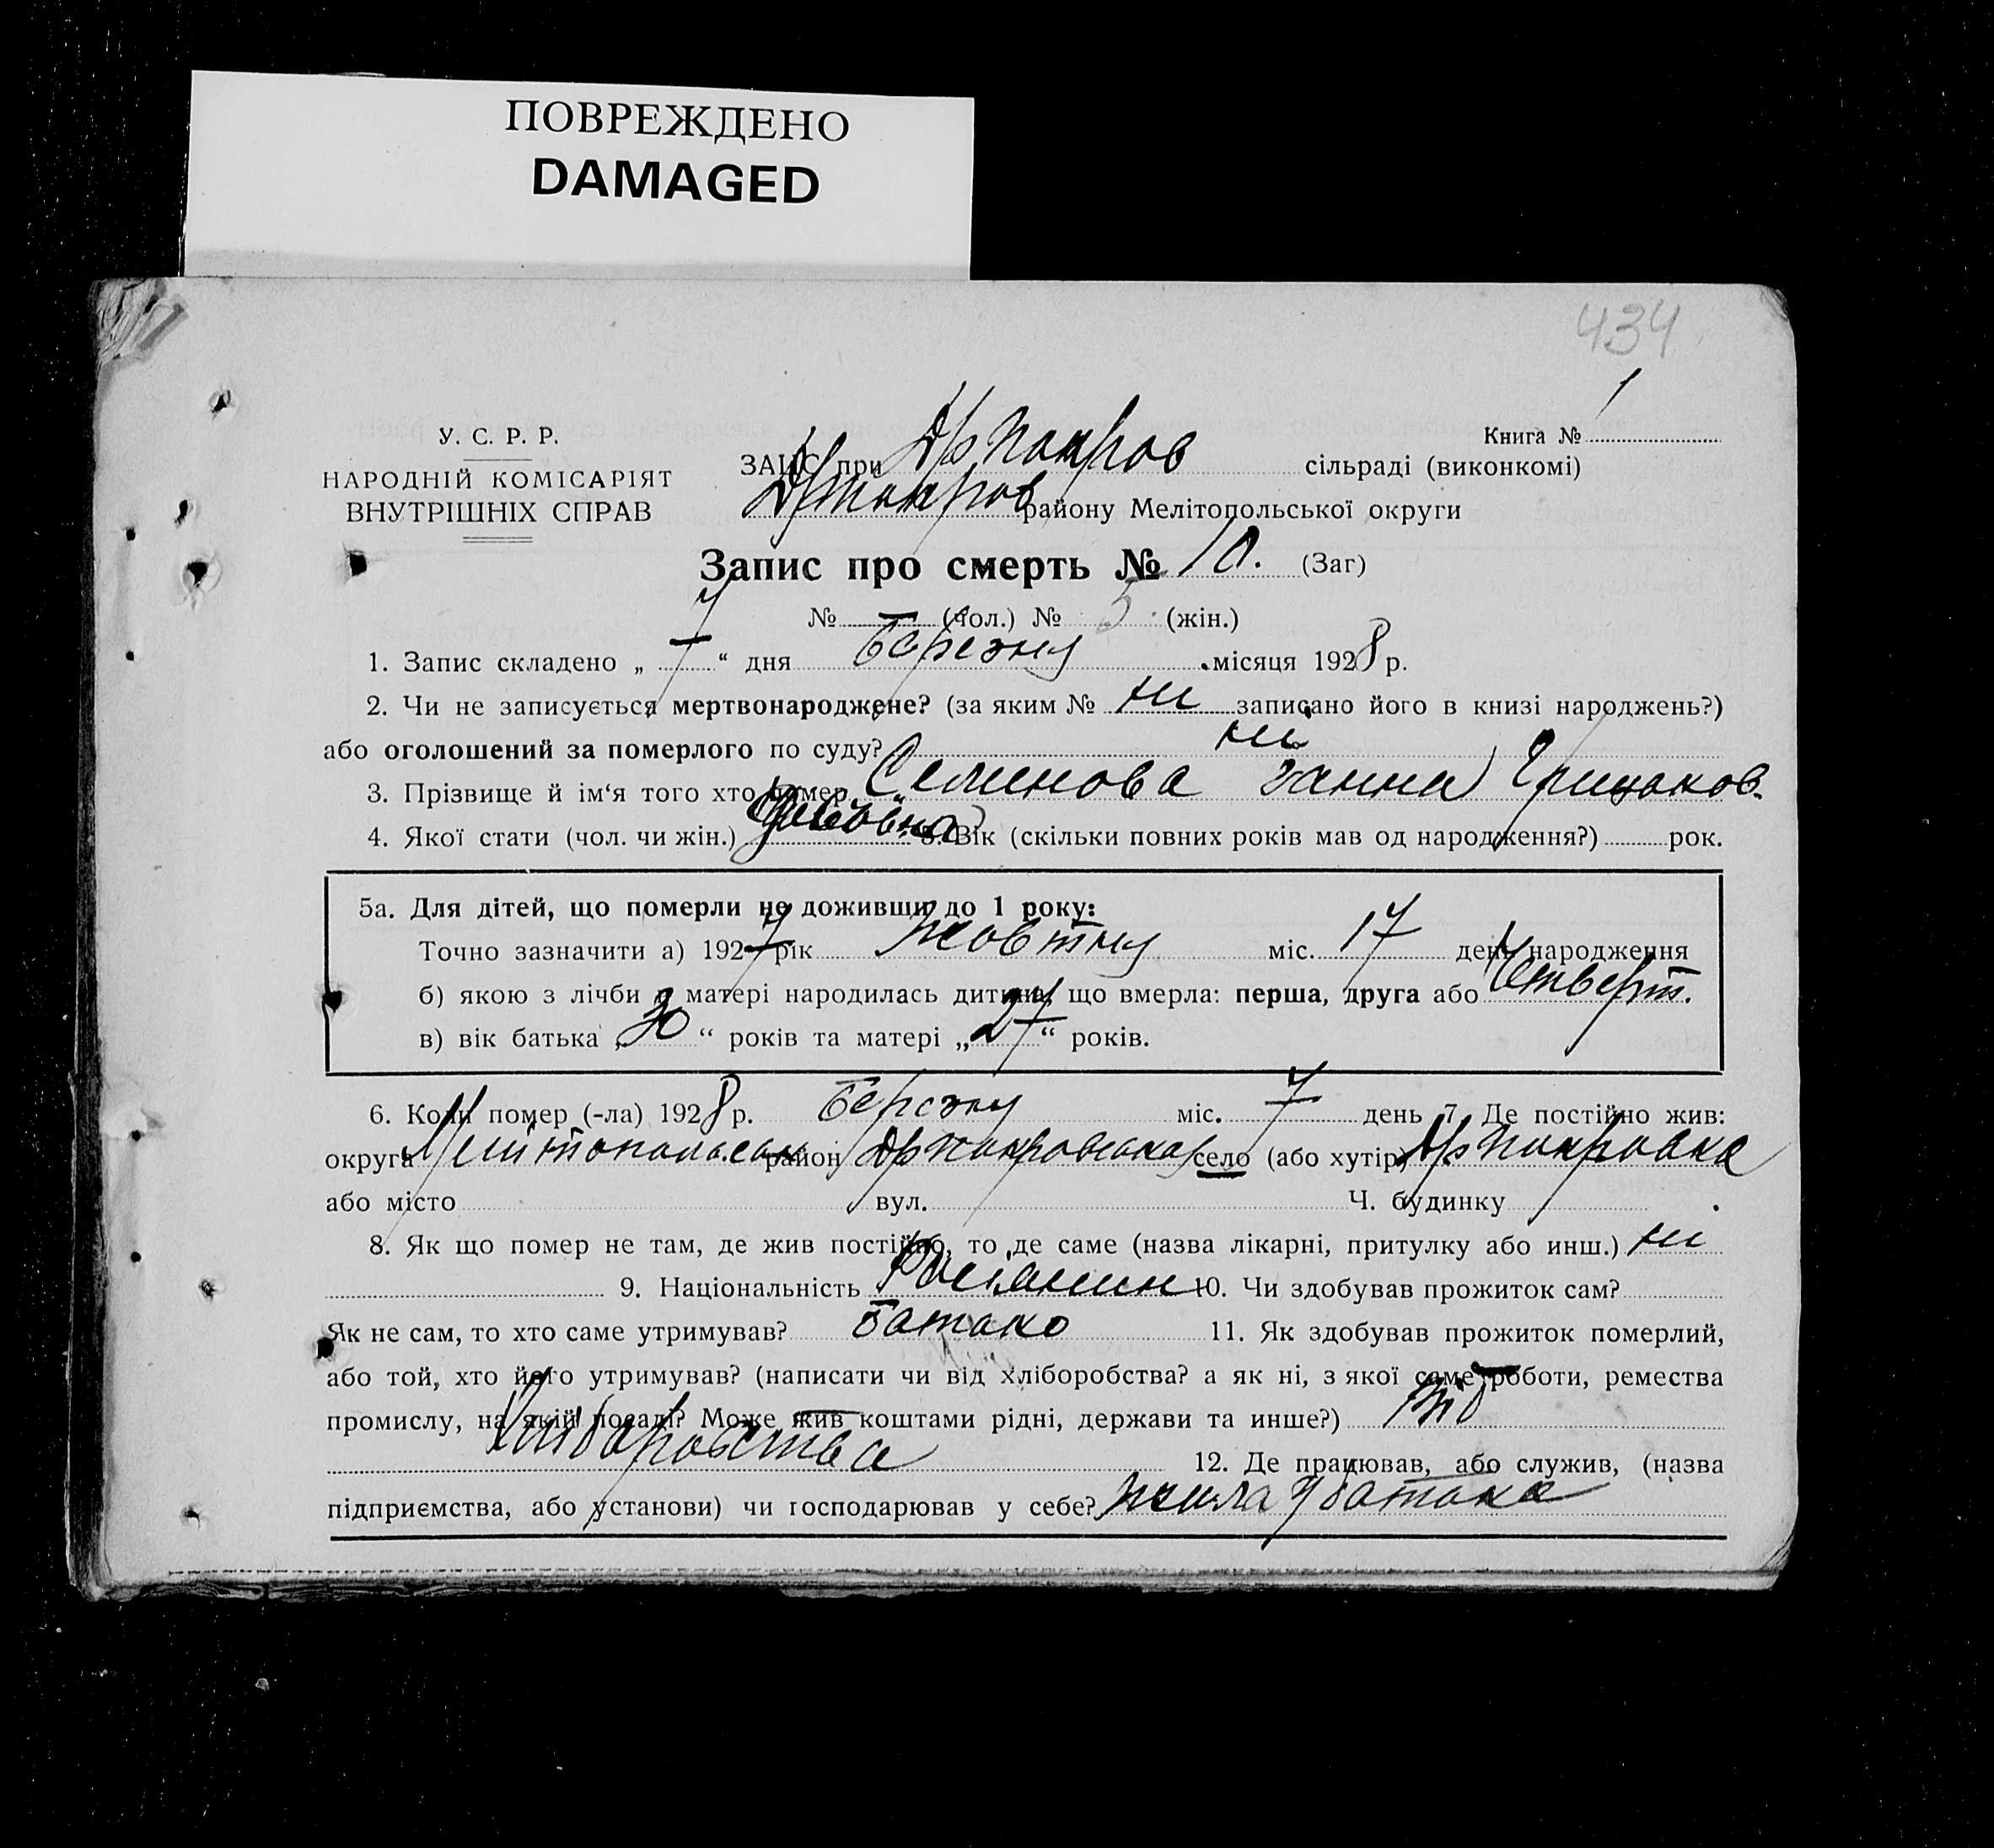 ПОВРЕЖДЕНО
DAMAGED
434
У. С. Р. Р.
НАРОДНІЙ КОМІСАРІЯТ
ВНУТРІШНІХ СПРАВ
Книга № 1
ЗАГС при Др Покров сільраді (виконкомі)
Др Покров району Мелітопольської округи
Запис про смерть № 10. (Заг)
№ (чол.) № 5 (жін.)
1. Запис складено „ 7 “ дня Березня місяця 1928 р.
2. Чи не записується мертвонароджене? (за яким № ні записано його в книзі народжень?)
або оголошений за померлого по суду? ні
3. Прізвище й ім‘я того хто помер Семинова Ганна
4. Якої стати (чол. чи жін.) 5. Вік (скільки повних років мав од народження?) рок.
5а. Для дітей, що померли не доживши до 1 року:
Точно зазначити а) 1927 рік Жовтня міс. 17 день народження
б) якою з лічби у матері народилась дитина, що вмерла: перша, друга або Четверт.
в) вік батька „ 30 “ років та матері „ 27 “ років.
6. Коли помер (-ла) 1928 р. Березня міс. 7 день 7. Де постійно жив:
округа район Др Покровська село (або хутір) Др Покровка
або місто вул. Ч. будинку
8. Як що помер не там, де жив постійно, то де саме (назва лікарні, притулку або инш.) ні
9. Національність Росіянин 10. Чи здобував прожиток сам?
Як не сам, то хто саме утримував? батько 11. Як здобував прожиток померлий,
або той, хто його утримував? (написати чи від хліборобства? а як ні, з якої саме роботи, ремества
промислу, на якій посаді? Може жив коштами рідні, держави та инше?) Від
Хліборобства 12. Де працював, або служив, (назва
підприємства, або установи) чи господарював у себе? жила у батька